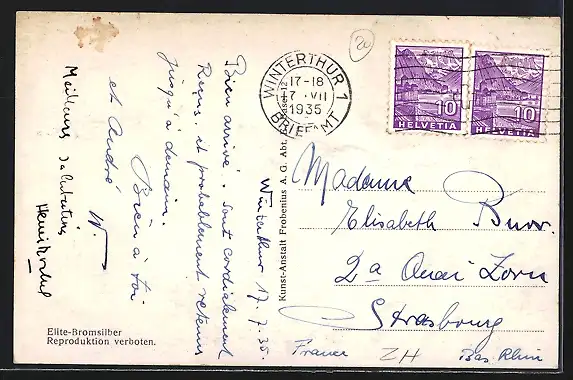 20
WINTERTHUR 1
17-18
17.VII
1935
BRIEFAMT
10
HELVETIA
10
HELVETIA
Winterthur 17.7.35.
Bien arrivé. sont cordialement
Reçus. et probablement retenus
jusqu'à demain.
Bien à toi
et André
Meilleures salutations
Kunst-Anstalt Frobenius A. G. Abt.
Elite-Bromsilber
Reproduktion verboten.
Madame
Elisabeth
2a Quai Zorn
Strasbourg
France ZH Bas Rhin